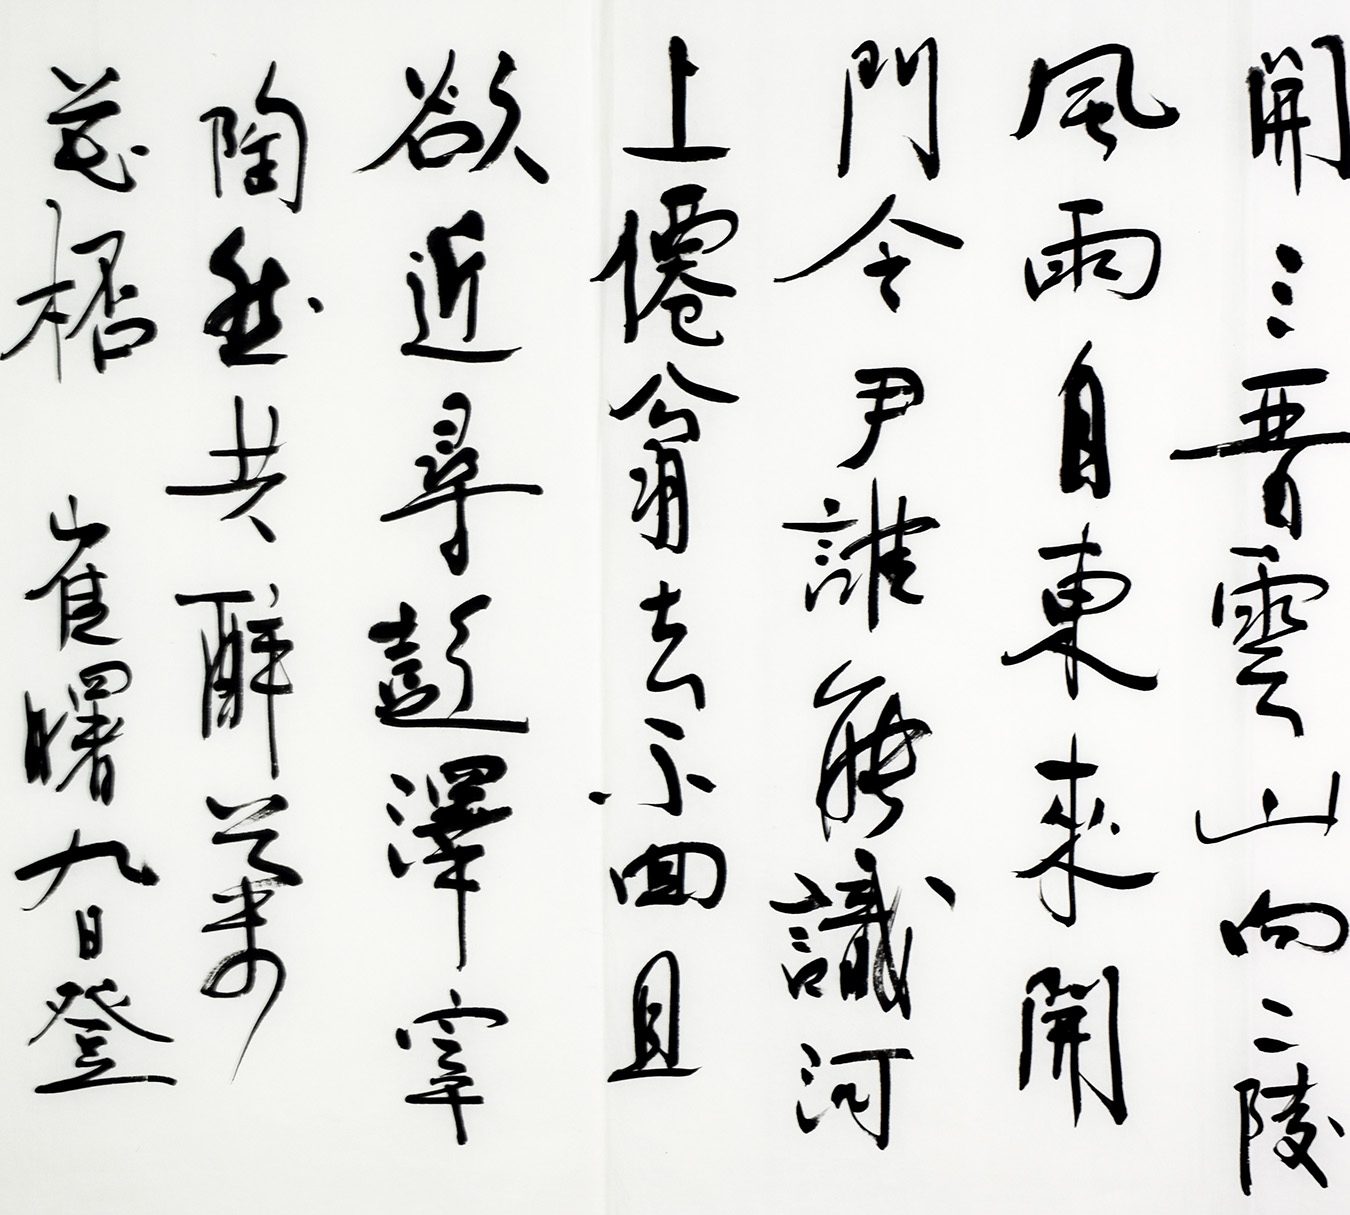 開三晉雲山向二陵
風雨自東來開
門令尹誰能識河
上僊翁去不回且
欲近尋彭澤宰
陶然共醉菊
花桮 崔曙九日登